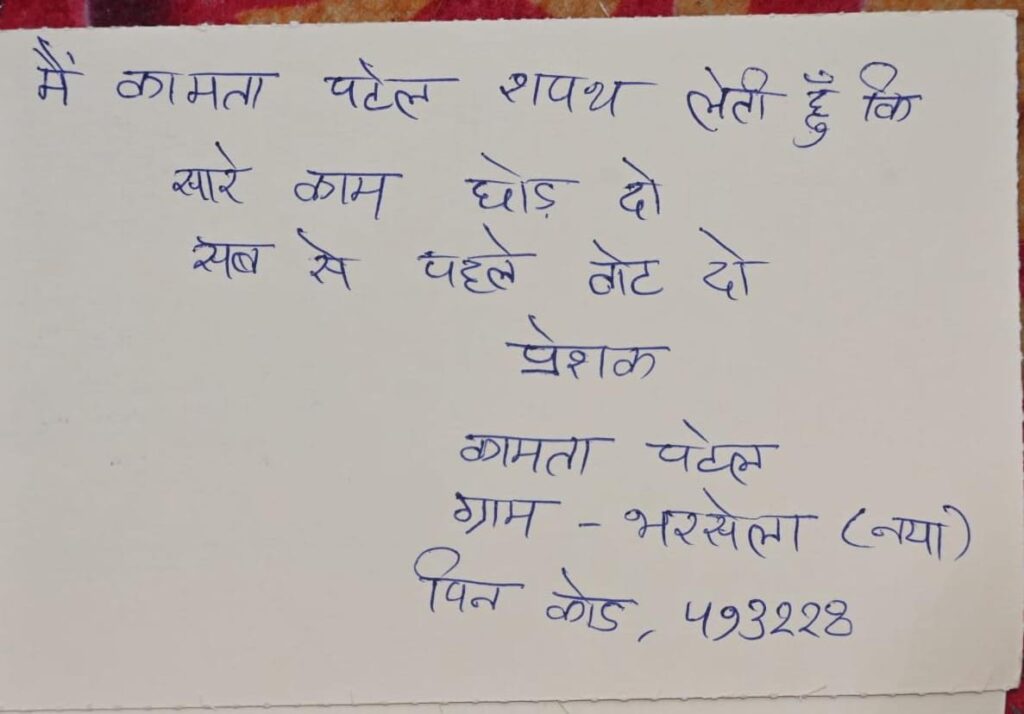 मैं कामता पटेल शपथ लेती हुँ कि
सारे काम छोड़ दो
सब से पहले वोट दो
प्रेशक
कामता पटेल
ग्राम - भरसेला (नया)
पिन कोड, ५९३२२8